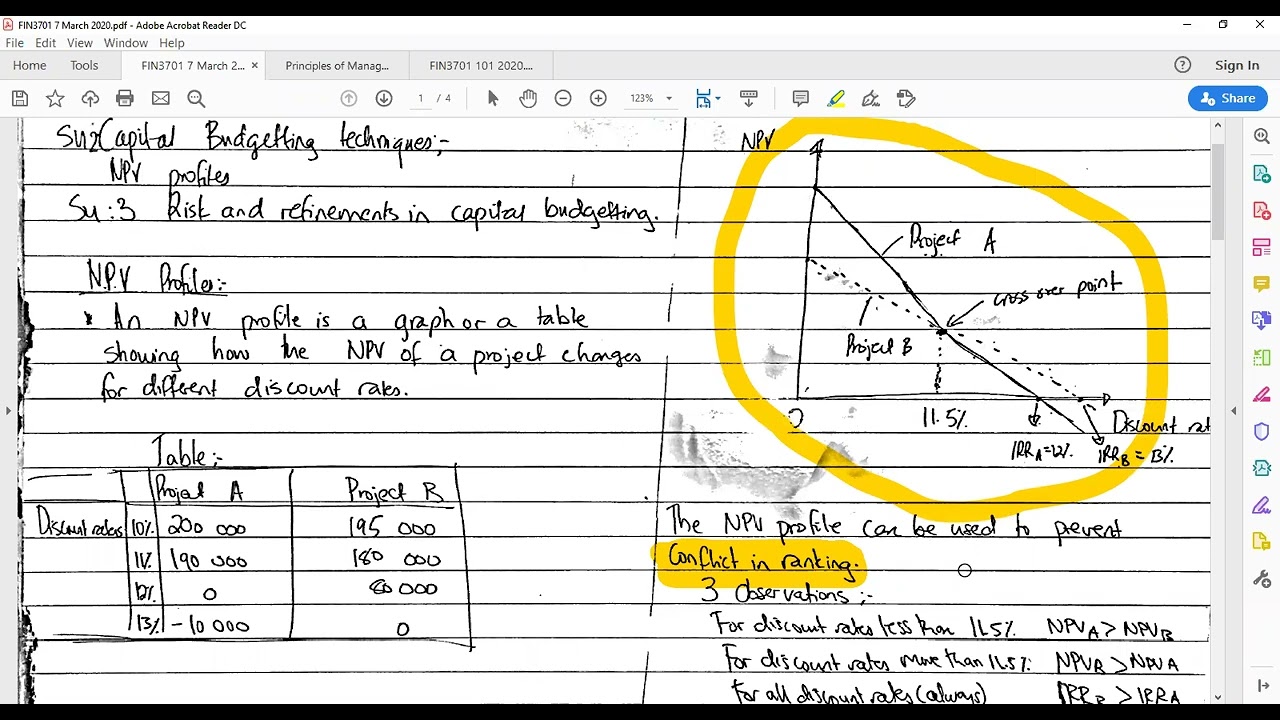 FIN3701 7 March 2020.pdf - Adobe Acrobat Reader DC
File Edit View Window Help
Home Tools FIN3701 7 March 2... × Principles of Manag... FIN3701 101 2020.... Sign In
1 / 4 123% Share
Su:2 Capital Budgetting techniques;-
NPV profiles
Su:3 Risk and refinements in capital budgetting.
N.P.V Profiles:-
* An NPV profile is a graph or a table
showing how the NPV of a project changes
for different discount rates.
Table;-
Project A Project B
Discount rates 10% 200 000 195 000
11% 190 000 180 000
12% 0 80 000
13% -10 000 0
NPV
Project A
cross over point
Project B
0 11.5% Discount rat
IRRA=12% IRRB = 13%
The NPV profile can be used to prevent
Conflict in ranking.
3 observations;-
For discount rates less than 11.5% NPVA > NPVB
For discount rates more than 11.5% NPVB > NPVA
For all discount rates (always) IRRB > IRRA